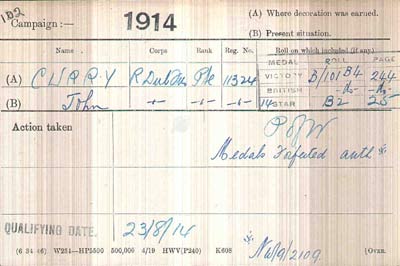 1D2
Campaign :— 1914
(A) Where decoration was earned.
(B) Present situation.
Name. Corps Rank Reg. No. Roll on which included (if any).
MEDAL ROLL PAGE
(A) CURRY R Dub Fus Pte 11324 VICTORY B/101 B4 244
BRITISH -do- -do-
(B) John -"- -"- 14 STAR B2 25
Action taken
P of W
Medals Forfeited auth ※
QUALIFYING DATE. 23/8/14
※ NW/9/2109
(6 34 46) W234—HP5500 500,000 4/19 HWV(P240) K608 [OVER.